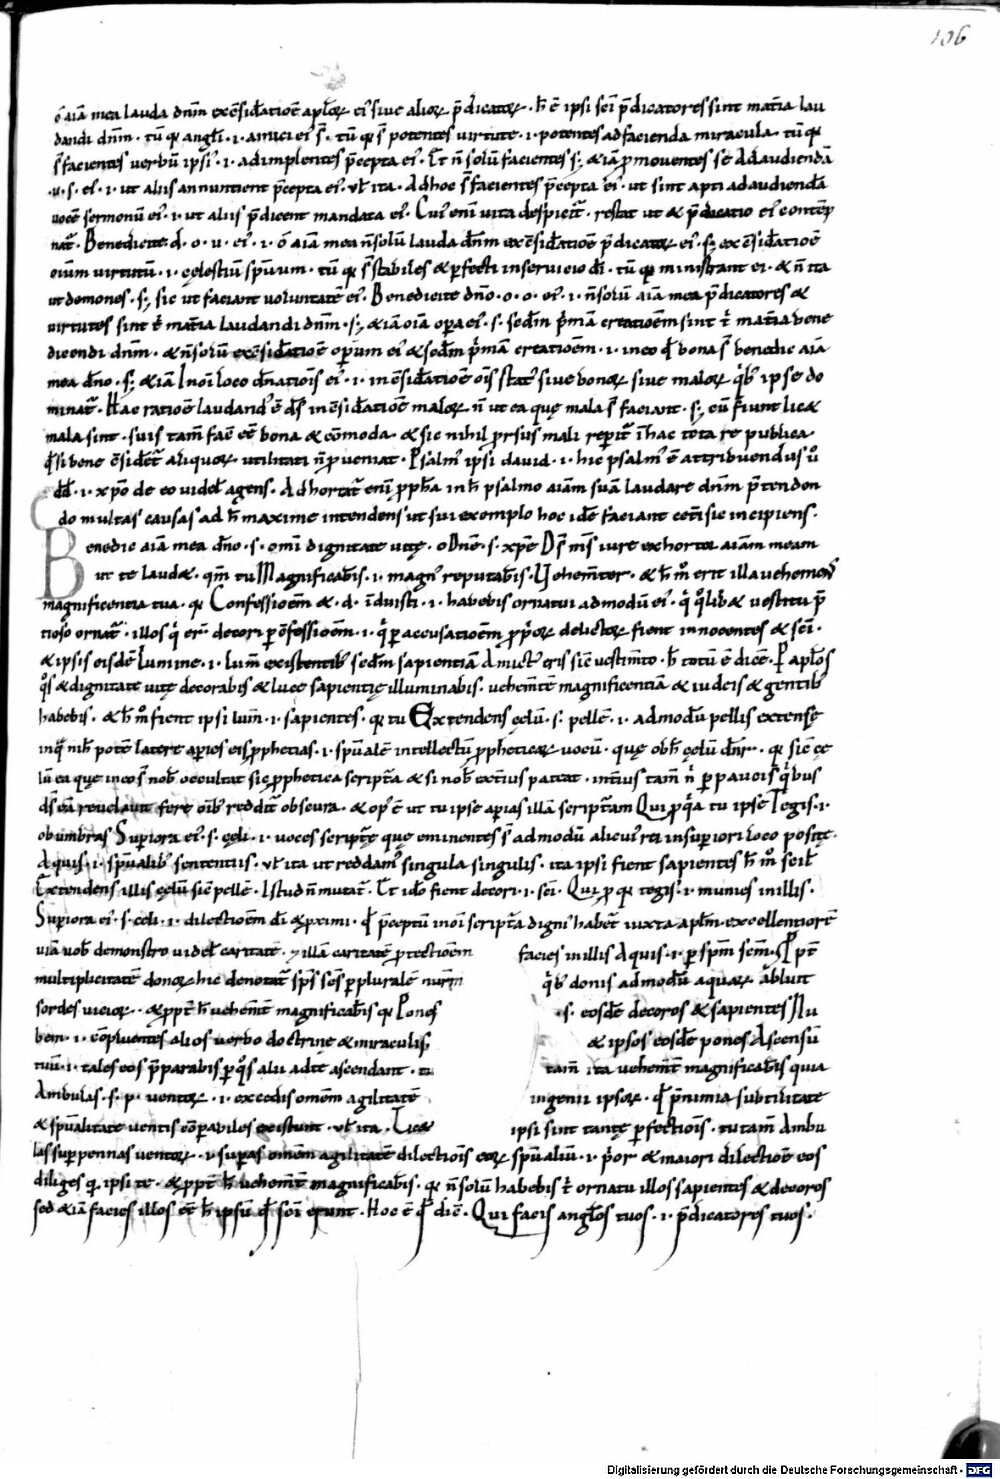 106
o aīa mea lauda dnm̄ ex c̄sidatiōe aplor̄ ei' sive alior̄ p̄dicator̄ · h̄ ē ipsi sc̄i p̄dicatores sint mat̄ia lau
dandi dnm̄ · tū q̄ angl̄i · i · amici ei' s̄ · tū q̄ s̄ potentes virtute · i · potentes ad facienda miracula · tū q̄
s̄ facientes verbū ipsi' · i · adimplentes p̄cepta ei' · Et n̄ solū facientes s; & iā p̄moventes se Ad audiendā
· v · s · ei' · i · ut aliis annuntient p̄cepta ei' · vl̄ ita · Ad hoc s̄ facientes p̄cepta ei' · ut sint apti ad audiendā
vocē sermonū ei' · i · ut aliis p̄dicent mandata ei' · Cui' enī vita despicit̄ · restat ut & p̄dicatio ei' contēp
nat̄ · Benedicite d · o · v · ei' · i · o aīa mea n̄ solū lauda dn̄m ex c̄sidatiōe p̄dicator̄ ei' · s; ex c̄sidatiōe
oīum virtutū · i · cęlestiū spūum · tū q̄ s̄ stabiles & p̄fecti in servicio dī · tū q̄ ministrant ei · & n̄ ita
ut demones · s; sic ut faciant voluntatē ei' · Benedicite dn̄o · o · o · ei' · i · n̄ solū aīam mea p̄dicatores &
virtutes sint t̄ mat̄ia laudandi dnm̄ · s; & iā oīa opa ei' · s · sedm̄ p̄mam creatiōem sint t̄ mat̄ia bene
dicendi dnm̄ · & n̄ solū ex c̄sidatiōē opum ei' & sedm̄ p̄mam creatiōem · i · in eo q̄ bona s̄ benedic aīa
mea dn̄o · s; & iā In oī loco dn̄ationis ei' · i · in c̄sidatiōe ois stat' sive bonor̄ sive malor̄ q̄b' ipse do
minat̄ · Hac ratiōe laudand' ē ds̄ in c̄sidatiōe malor̄ n̄ ut ea quę mala s̄ faciant · s; cū fiunt lic&
mala sint · suis tam̄ fac̄ ēē bona & cōmoda · & sic nihil prsus mali repit̄ in hac tota re publica
q̄ si bene c̄sidet̄ aliquor̄ utilitati n̄ pveniat · Psalm' ipsi david · i · hic psalm' ē attribuendus v̄
dd̄ · i · xp̄o de eo videl̄ agens · Adhortat̄ enī ppha in h̄ psalmo aīam suā laudare dnm̄ p̄tendon
do multas causas ad h̄ maxime intendens ut sui exemplo hoc idē faciant cet̄i sic incipiens ·
Benedic aīa mea dn̄o · s · omī dignitate vitę · o Dn̄e · s · xp̄e Ds̄ m̄s iure exhortor aīam meam
ut te laud& · qm̄ tu Magnificab̄is · i · magn' reputab̄is · Vehem̄ter · & h̄ m̄ erit illa vehemens
magnificentia tua · q̄ Confessiōem & · d · īduisti · i · habebis ornatui ad modū ei' · q̄ q̄lib& vestitu p̄
tioso ornat̄ · illos q̄ er̄ decori p ōfessiōem · i · q̄ p accusatiōem ppor̄ delictor̄ fient innocentes & sc̄i ·
& ipsis eisdē Lumine · i · lum̄ existentib' sedm̄ sapientiā Amict' eris sic̄ vestim̄to · h̄ totū ē dicē · P aplos
q̄s & dignitate vitę decorabis & luce sapientię illuminabis · vehem̄te magnificentiā & iudeis & gentib'
habebis · & h̄ m̄ fient ipsi lum̄ · i · sapientes · q̄ tu Extendens cęlū · s · pellē · i · ad modū pellis extensę
in q̄ nih̄ potē latere apies eis pphetias · i · spūalē intellectū ppheticar̄ vocū · quę ob h̄ cęlū dn̄r · q̄ sic̄ cę
lū ea quę in eo s̄ nob̄ occultat sic pphetica scripta & si nob̄ ext̄ius pateat · int̄ius tam̄ n̄ p paucis q̄bus
ds̄ ea revelavit fere oīb' reddit̄ obscura · & op' ē ut tu ipse apias illā scripturam Qui p q̄a tu ipse Tegis · i ·
obumbras Supiora ei' · s · cęli · i · voces scriptę quę eminentes s̄ ad modū alicui' rei in supiori loco positę ·
Aquis · i · spūalib' sententiis · vl̄ ita ut reddam' singula singulis · ita ipsi fient sapientes h̄ m̄ scil̄
Extendens illis cęlū sic̄ pellē · Istud n̄ mutat̄ · Et idō fient decori · i · sc̄i · Qui p q̄ tegis · i · munies in illis ·
Supiora ei' · s · celi · i · dilectiōem dī & pximi · q̄ p̄ceptū in oī scriptura digni' habet̄ iuxta aplm̄ · excellentiorē
viā vob̄ demonstro videl̄ caritatē · & illā caritatē ptectiōem facies in illis Aquis · i · p spm̄ sc̄m · P pt̄
multiplicitatē donor̄ hic denotat̄ sp̄s sc̄s p pluralē num̄ q̄b' donis ad modū aquar̄ abluit
sordes vicior̄ · & ppt̄ h̄ vehem̄t magnificab̄is q̄ Pones · s · eosdē decoros & sapientes Nu
bem · i · cōpluentes alios verbo doctrinę & miraculis & ipsos eosdē pones Ascensū
tuū · i · tales eos p̄parabis p q̄s alii ad te ascendant · tu tam̄ ita vehem̄t magnificab̄is quia
Ambulas · s · p · ventor̄ · i · excedis omēm agilitatē ingenii ipsor̄ · q̄ p nimia subtilitate
& spūalitate ventis cōpabiles existunt · vl̄ ita · Lic& ipsi sint tantę pfectiōis · tu tam̄ Ambu
las sup pennas ventor̄ · i · supas omēm agilitatē dilectiōis eor̄ spūaliū · i · p̄or & maiori dilectiōe eos
diliges q̄ ipsi te · & ppt̄ h̄ vehem̄t magnificab̄is · q̄ n̄ solū habebis t̄ ornatu illos sapientes & decoros
sed & iā facies illos ēē h̄ ipsū q̄ sc̄i erunt · Hoc ē q̄ dic̄ · Qui facis anglos tuos · i · p̄dicatores tuos ·
Digitalisierung gefördert durch die Deutsche Forschungsgemeinschaft - DFG